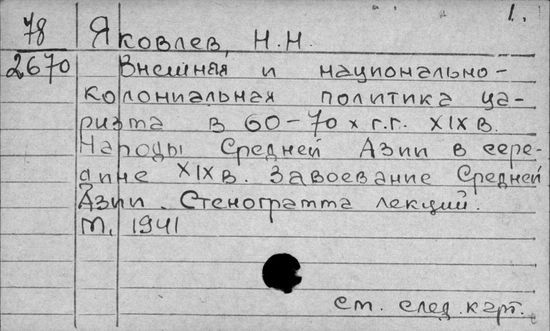 1.
78 Яковлев, Н.Н.
2670 Внешная и национально-
колониальная политика ца-
ризма в 60-70х г.г. XIX в.
Народы Средней Азии в сере-
дине XIX в. Завоевание Средней
Азии. Стенограмма лекций.
М, 1941
см. след. карт.